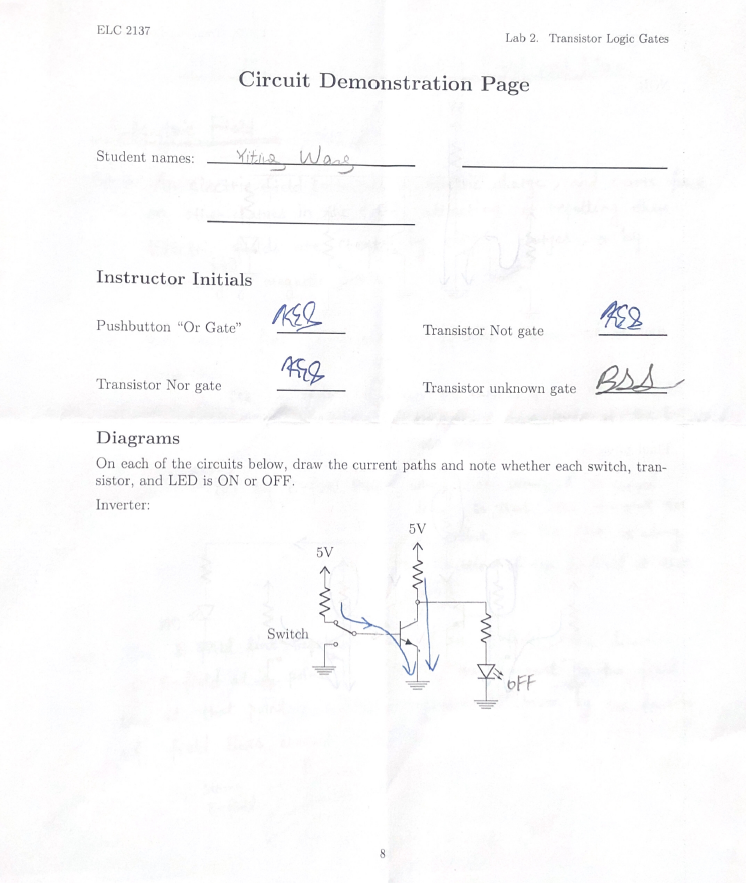 ELC 2137
Lab 2. Transistor Logic Gates
Circuit Demonstration Page
Student names: Wang
Instructor Initials
Pushbutton “Or Gate”
Transistor Not gate
Transistor Nor gate
Transistor unknown gate BSS
Diagrams
On each of the circuits below, draw the current paths and note whether each switch, tran-
sistor, and LED is ON or OFF.
Inverter:
5V
5V
Switch
OFF
8